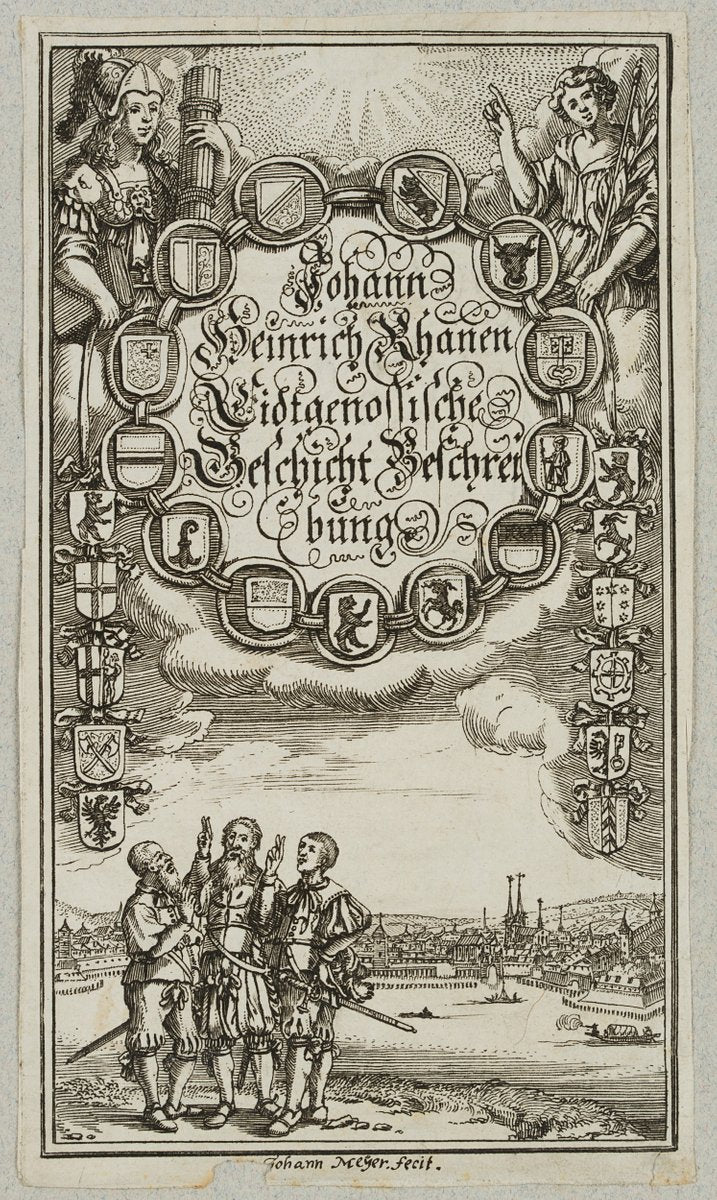 Johann
Heinrich Rhanen
Eidtgenossische
Geschicht Beschrei
bung
Johann Meyer. fecit.